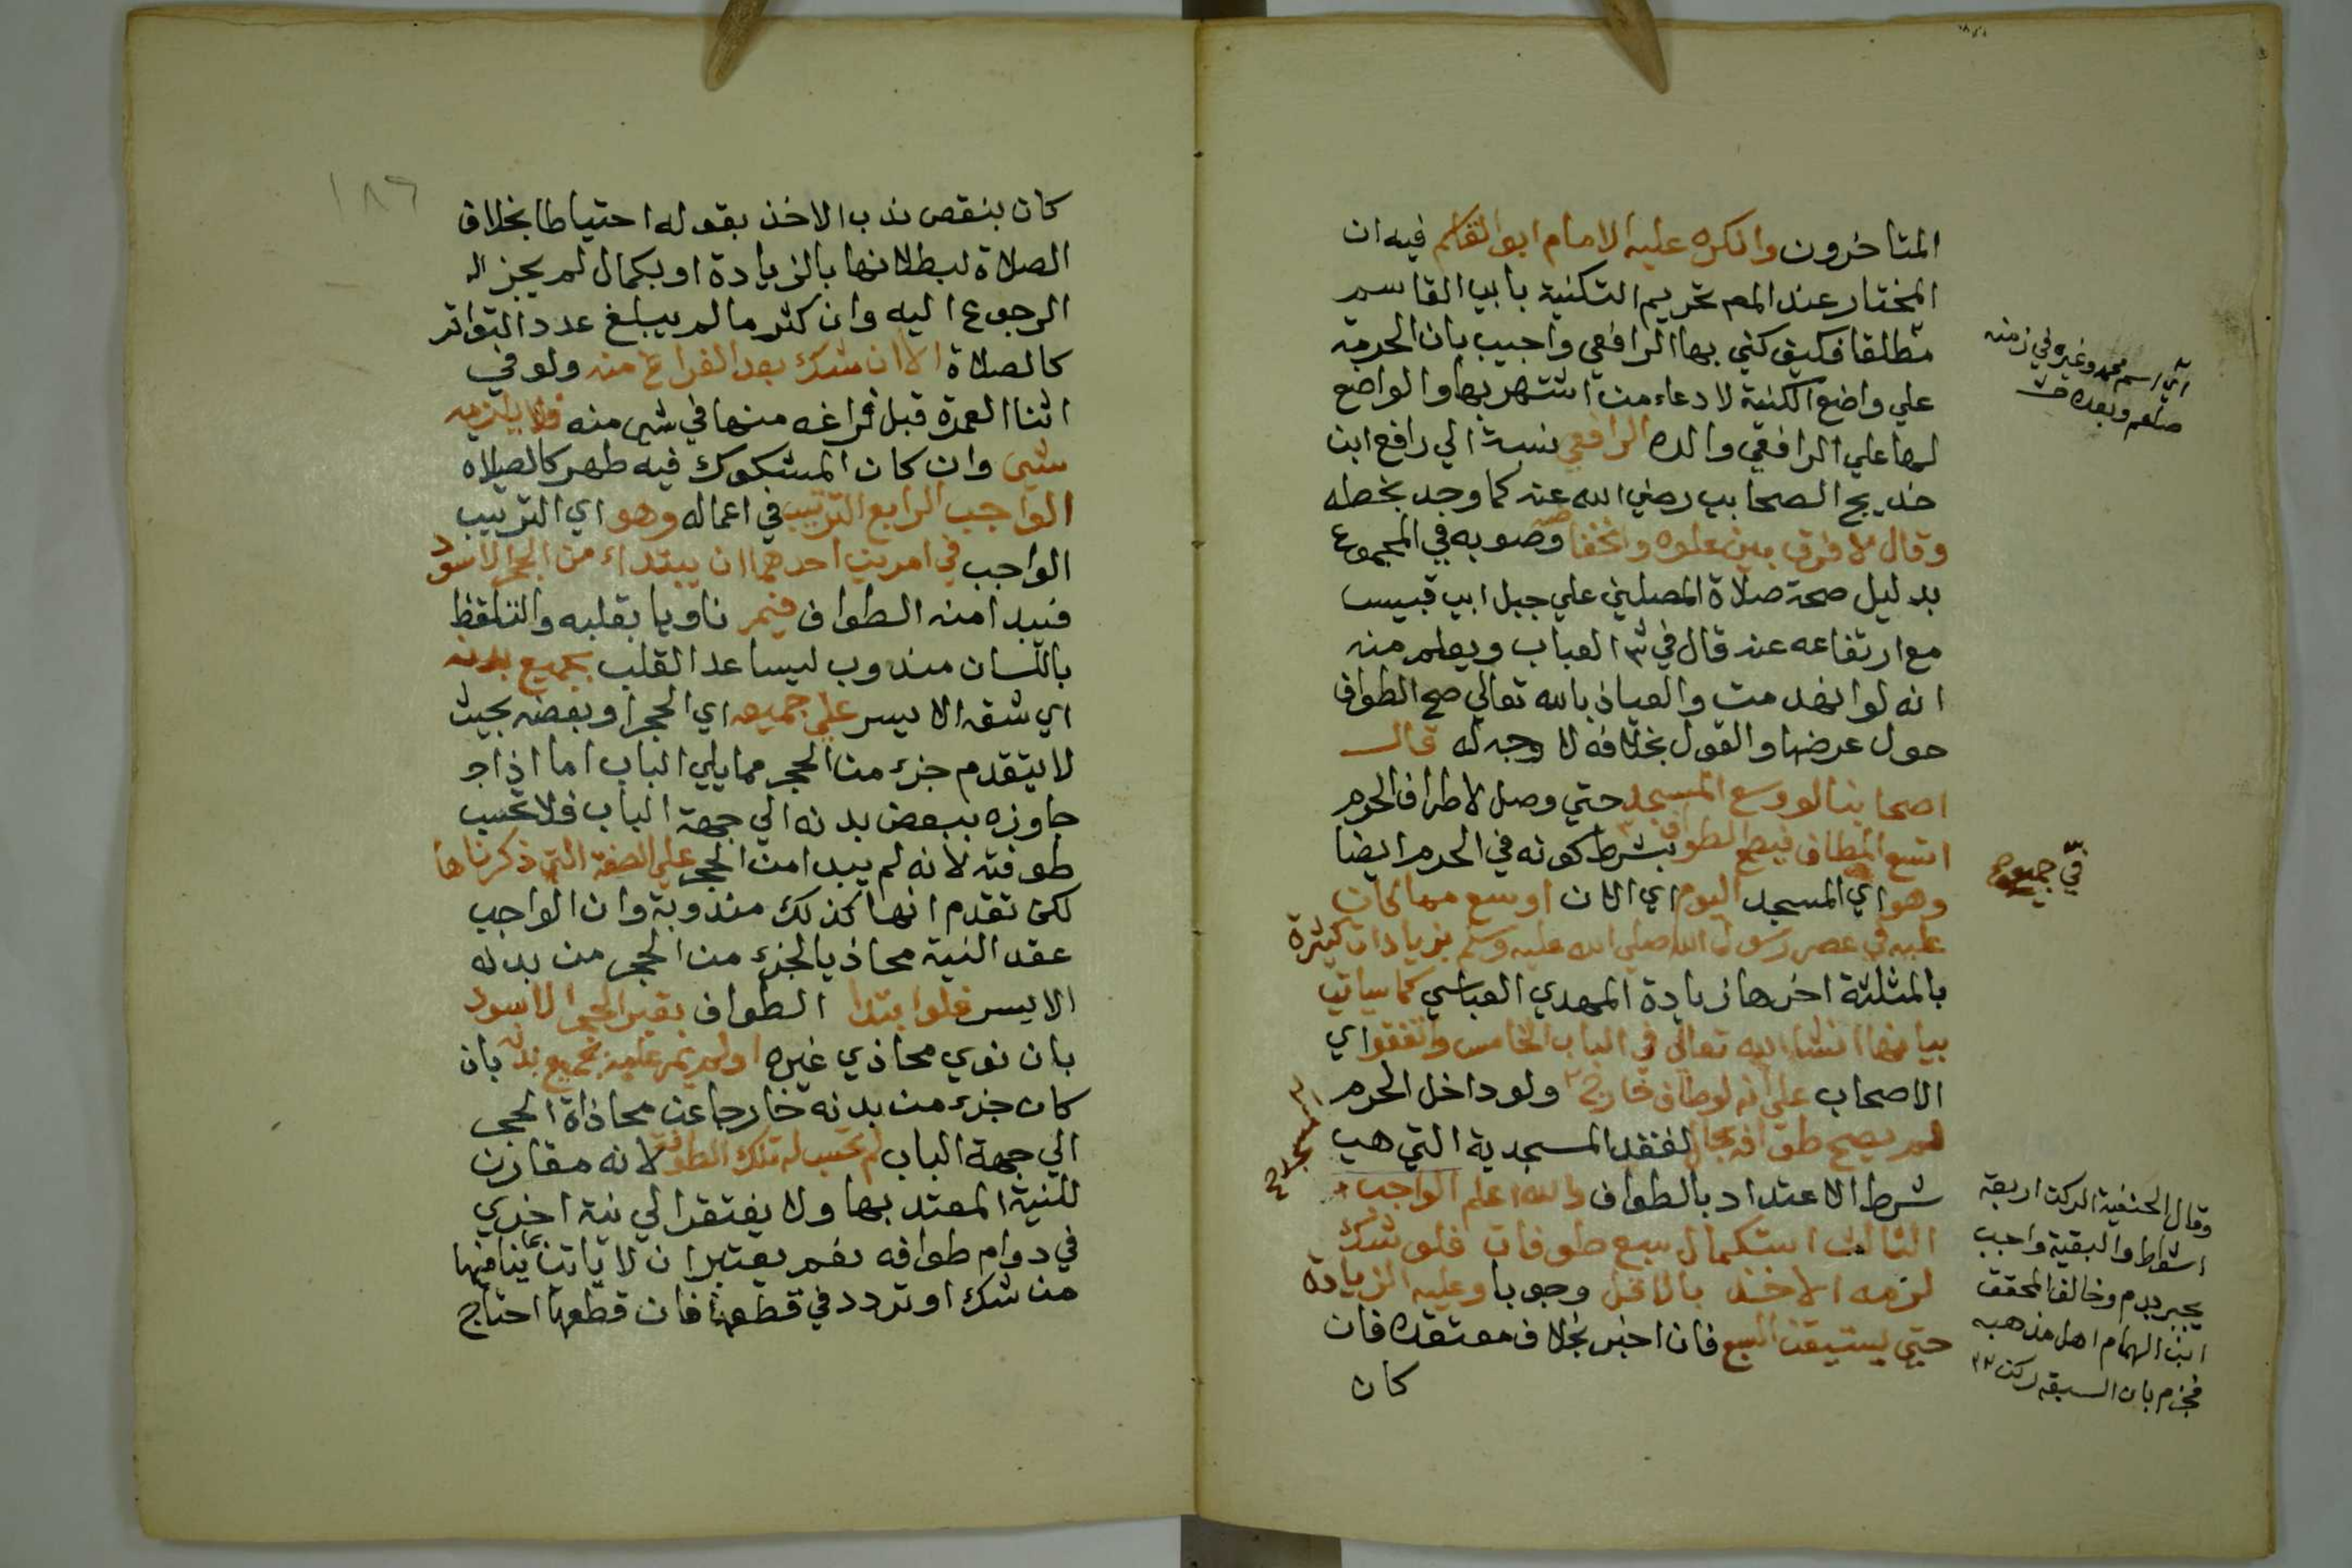 المتاخرون وانكره عليه الامام ابو القاسم فيه ان
المختار عند المص تحريم التكنية بابي القاسم
مطلقا فكيف كني بها الرافعي واجيب بان الحرمة
علي واضع الكنية لا دعاء من اشتهر بها والواضع
لها علي الرافعي والده الرافعي نسبة الي رافع ابن
خديج الصحابي رضي الله عنه كما وجد بخطه
وقال لا فرق بين علوه وانخفاضه وصوبه في المجموع
بدليل صحة صلاة المصلي علي جبل ابي قبيس
مع ارتفاعه عنه قال في ش العباب ويعلم منه
انه لو انهدمت والعياذ بالله تعالي صح الطواف
حول عرضها والقول بخلافه لا وجه له قال
اصحابنا لو وسع المسجد حتي وصل لاطراف الحرم
اتسع المطاف فيصح الطواف بشرط كونه في الحرم ايضا
وهو اي المسجد اليوم اي الان اوسع مما كان
عليه في عصر رسول الله صلي الله عليه وسلم بزيادات كثيرة
بالمثلثة اخرها زيادة المهدي العباسي كما سياتي
بيانها انشا الله تعالي في الباب الخامس واتفقوا اي
الاصحاب علي انه لو طاف خارج ولو داخل الحرم
المسجد
لم يصح طوافه بحال لفقد المسجدية التي هي
شرط الاعتداد بالطواف والله اعلم الواجب
الثالث استكمال سبع طوفات فلو شك
لزمه الاخذ بالاقل وجوبا وعليه الزيادة
حتي يستيقن السبع فان اخبر بخلاف معتقده فان
كان
اي اسم محمد وغيره في زمنه
صلعم وبعده
في جميع
وقال الحنفية الركن اربعة
اشواط والبقية واجب
يجبر بدم وخالف المحقق
ابن الهمام اهل مذهبه
فجزم بان السبعة ركن
١٨٦
كان بنقص ندب الاخذ بقوله احتياطا بخلاف
الصلاة لبطلانها بالزيادة او بكمال لم يجز له
الرجوع اليه وان كثر ما لم يبلغ عدد التواتر
كالصلاة الا ان شك بعد الفراغ منه ولو في
اثنا العمرة قبل فراغه منها في شي منه فلا يلزمه
شي وان كان المشكوك فيه طهر كالصلاه
الواجب الرابع الترتيب في اعماله وهو اي الترتيب
الواجب في امرين احدهما ان يبتداء من الحجر الاسود
فيبدا منه الطواف فيمر ناويا بقلبه والتلفظ
باللسان مندوب ليساعد القلب بجميع بدنه
اي شقه الايسر علي جميعه اي الحجر او بعضه بحيث
لا يتقدم جزء من الحجر مما يلي الباب اما اذا
جاوزه ببعض بدنه الي جهة الباب فلا تحسب
طوفته لانه لم يبدا من الحجر علي الصفة التي ذكرناها
لكن تقدم انها كذلك مندوبة وان الواجب
عقد النية محاذيا لجزء من الحجر من بدنه
الايسر فلو ابتدا الطواف بغير الحجر الاسود
بان نوي محاذي غيره او لم يمر عليه بجميع بدنه بان
كان جزء من بدنه خارجا عن محاذاة الحجر
الي جهة الباب لم تحسب له تلك الطوفة لانه مقارن
للنية المعتد بها ولا يفتقر الي نية اخري
في دوام طوافه نعم يعتبر ان لا ياتي بما ينافيها
من شك او تردد في قطعها فان قطعها احتاج